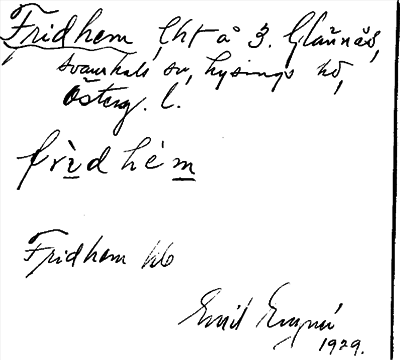 Fridhem, lht å 3. Glasnäs,
Svanhals sn, Lysings hd,
Österg. l.
frìdhém
Fridhem hb
Emil
1929.